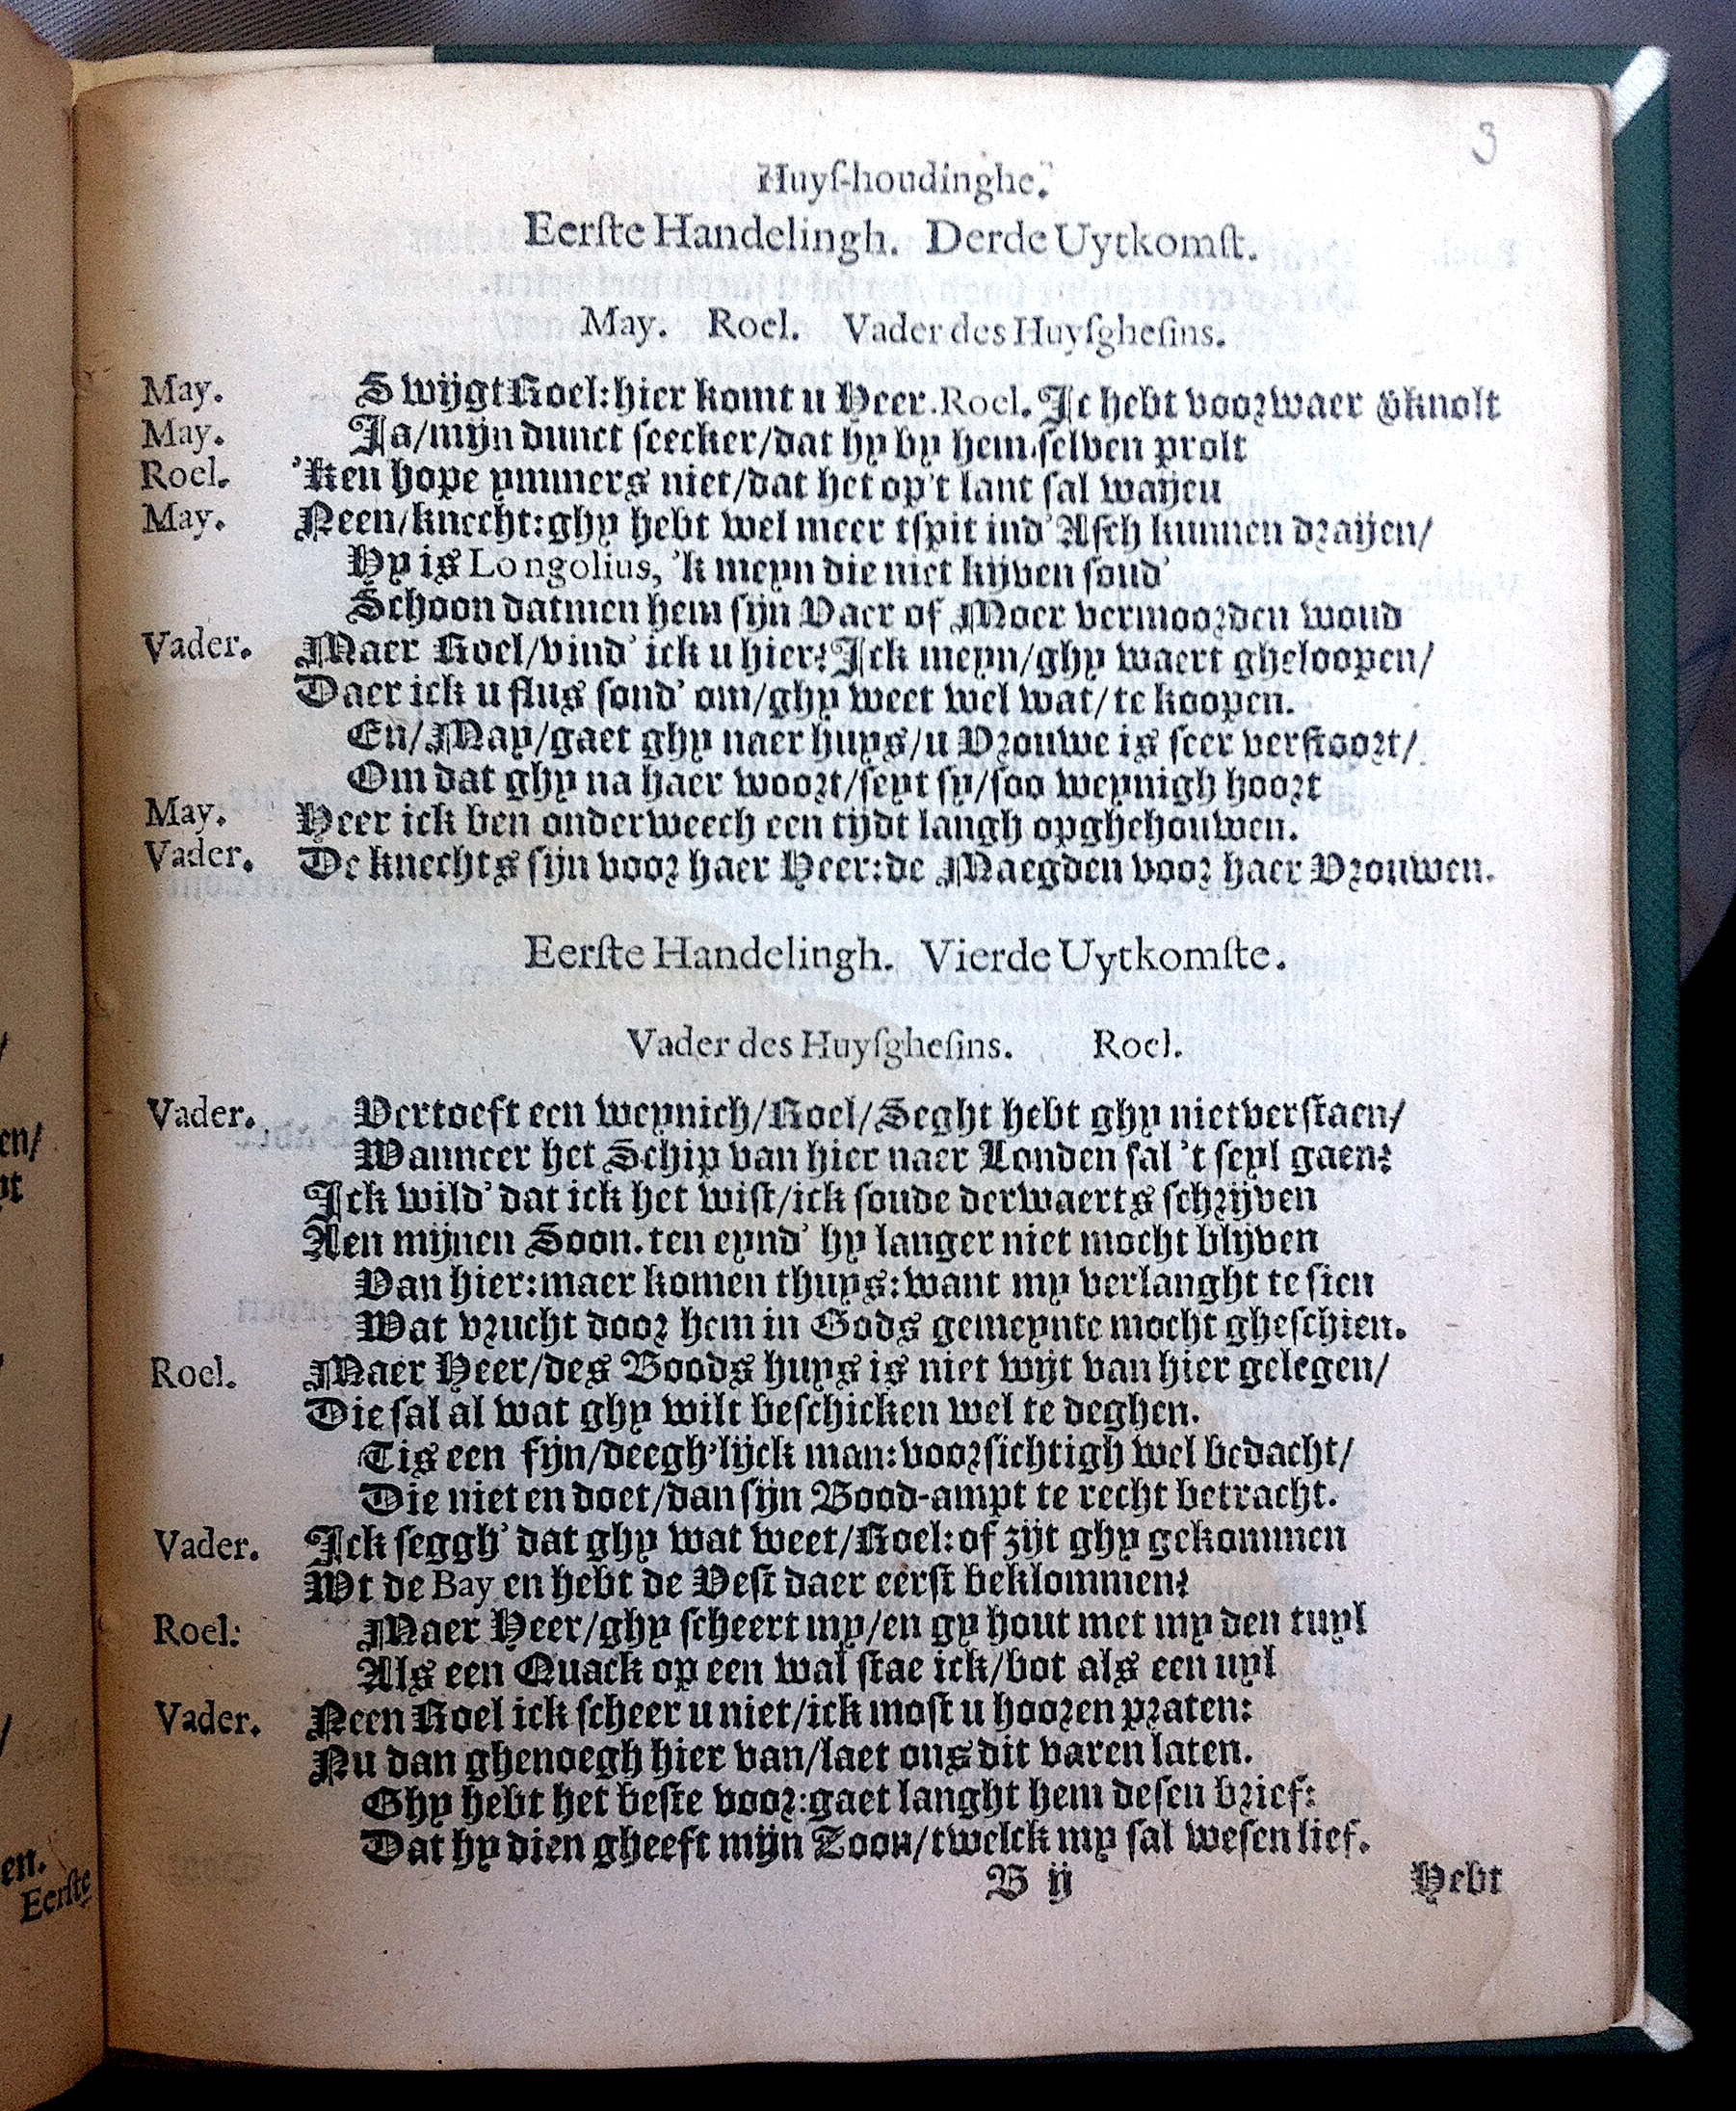 3
Huyſ-houdinghe.
Eerſte Handelingh. Derde Uytkomſt.
May. Roel. Vader des Huyſgheſins.
May. Swijgt Roel: hier komt u Heer. Roel. Ic hebt voorwaer ÿknolt
May. Ja/mijn dunct ſeecker/dat hy by hem ſelven prolt
Roel. 'Ken hope ymmers niet/dat het op't lant ſal waijen
May. Neen/knecht: ghy hebt wel meer tſpit ind' Aſch kunnen draijen/
Hy is Longolius, 'k meyn die niet kijven ſoud'
Schoon datmen hem ſijn Vaer of Moer vermoorden woud
Vader. Maer Roel/vind' ick u hier? Ick meyn/ghy waert gheloopen/
Daer ick u flus ſond' om/ghy weet wel wat/te koopen.
En/May/gaet ghy naer huys/u Vrouwe is ſeer verſtoort/
Om dat ghy na haer woort/ſeyt ſy/ſoo weynigh hoort
May. Heer ick ben onderweech een tijdt langh opghehouwen.
Vader. De knechts ſijn voor haer Heer: de Maegden voor haer Vrouwen.
Eerſte Handelingh. Vierde Uytkomſte.
Vader des Huyſgheſins. Roel.
Vader. Vertoeft een weynich/Roel/Seght hebt ghy niet verſtaen/
Wanneer het Schip van hier naer Londen ſal 't ſeyl gaen?
Ick wild' dat ick het wiſt/ick ſoude derwaerts ſchrijven
Aen mijnen Soon. ten eynd' hy langer niet mocht blijven
Van hier: maer komen thuys: want my verlanght te ſien
Wat vrucht door hem in Gods gemeynte mocht gheſchien.
Roel. Maer Heer/des Boods huys is niet wijt van hier gelegen/
Die ſal al wat ghy wilt beſchicken wel te deghen.
Tis een fijn/deegh'lijck man: voorſichtigh wel bedacht/
Die niet en doet/dan ſijn Bood-ampt te recht betracht.
Vader. Ick ſeggh' dat ghy wat weet/Roel: of zijt ghy gekommen
Wt de Bay en hebt de Veſt daer eerſt beklommen?
Roel: Maer Heer/ghy ſcheert my/en gy hout met my den tuyl
Als een Quack op een wal ſtae ick/bot als een uyl
Vader. Neen Roel ick ſcheer u niet/ick moſt u hooren praten:
Nu dan ghenoegh hier van/laet ons dit varen laten.
Ghy hebt het beſte voor: gaet langht hem deſen brief:
Dat hy dien gheeft mijn Zoon/twelck my ſal weſen lief.
B ij Hebt
en/
en.
Eerſte